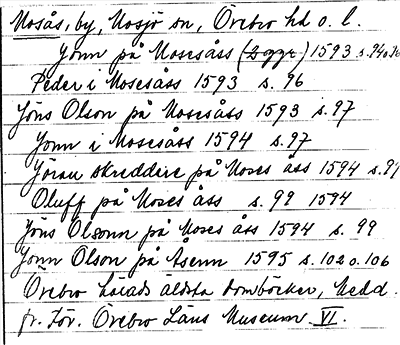 Mosås, by, Mosjö sn, Örebro hd o. l.
Jonn på Mosesåss (2 ggr) 1593 s. 94 o. 96
Peder i Mosesåss 1593 s. 96
Jöns Olson på Mosesåss 1593 s. 97
Jonn i Mosesåss 1594 s. 97
Jöran skreddere på Moses åss 1594 s. 97
Oluff på Moses åss s. 99 1594
Jöns Olsonn på Moses åss 1594 s. 99
Jonn Olson på Åsenn 1595 s. 102 o. 106
Örebro härads äldsta domböcker, Medd.
fr. För. Örebro Läns Museum VI.